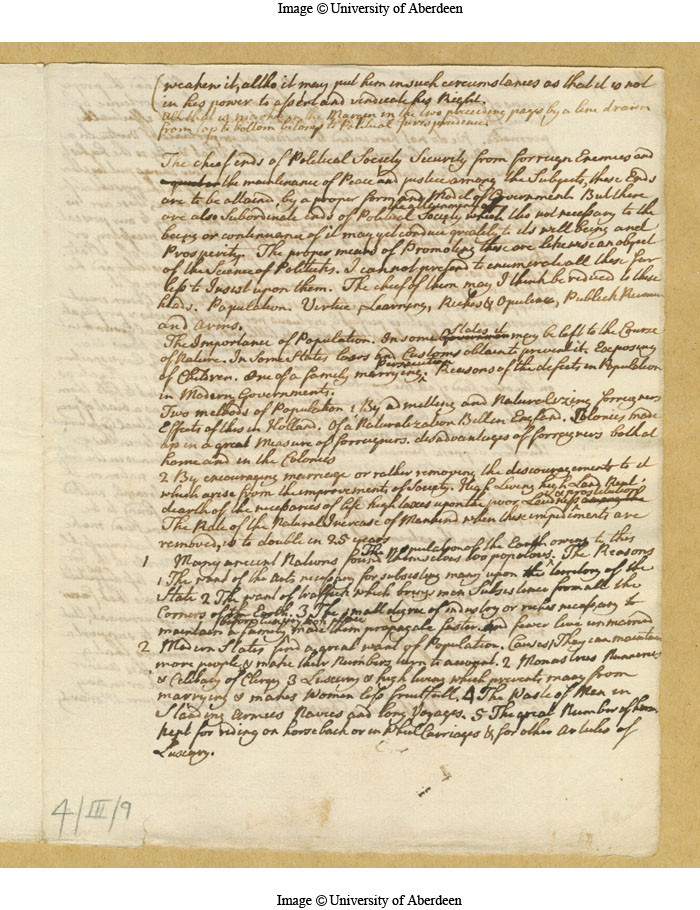 Image © University of Aberdeen
weaken it, altho it may put him in such circumstances as that it is not
in his power to assert and vindicate his Right.
All that is marked on the Margin in the two preceding pages by a line drawn
from top to bottom belongs to Political Jurisprudence
The chief ends of Political Society Security from forreign Enemies and
the maintenance of Peace and justice among the Subjects, these Ends
are to be attained by a proper form and Model of Government. But there
are also Subordinate ends of Political Society the attainment of which tho not necessary to the
being or continuance of it may yet conduce greatly to its well being and
Prosperity. The proper means of Promoting these are likewise an object
of the Science of Politicks. I cannot pretend to enumerate all these far
less to Insist upon them. The chief of them may I think be reduced to these
heads. Population. Virtue, Learning, Riches & Opulence, Publick Revenue
and Arms.
The Importance of Population. In some States it may be left to the Course
of Nature. In Some States laws and Customs obtain to prevent it. Exposing
of Children. One of a family marrying. Persecution Reasons of the defects in Population
in Modern Governments.
Two methods of Population 1 By admitting and Naturalizing forreigners
Effects of this in Holland. Of a Naturalization Bill in England. Colonies made
up in a great Measure of forreigners. disadvantages of forreigners both at
home and in the Colonies
2 By encouraging marriage or rather removing the discouragements to it
which arise from the improvements of Society. High living high Land Rent
dearth of the necessaries of life high taxes upon the poor Lewdness & prostitution
The Rate of the Natural Increase of Mankind when these impediments are
removed, is to double in 25 years
1 Many ancient Nations found themselves too populous. The Population of the Earth owing to this The Reasons
1 The want of the Arts necessary for subsisting many upon the territory of the
State 2 The want of traffick which brings men Subsistence from all the
Corners of the Earth. 3 The small degree of industry or riches necessary to
maintain a family made them propagate faster and fewer live unmarried
2 Modern States find a great want of Population. Causes 1 They can maintain
more people & make their Numbers turn to account. 2 Monastries Nunneries
& Celibacy of Clergy 3 Luxury & high living which prevents many from
marrying & makes Women less fruitfull. 4 The Waste of Men in
Standing Armies Navies and long Voyages. 5 The great Number of horses
kept for riding on horseback or in Wheel Carriages & for other Articles of
Luxury.
4/III/9
Image © University of Aberdeen